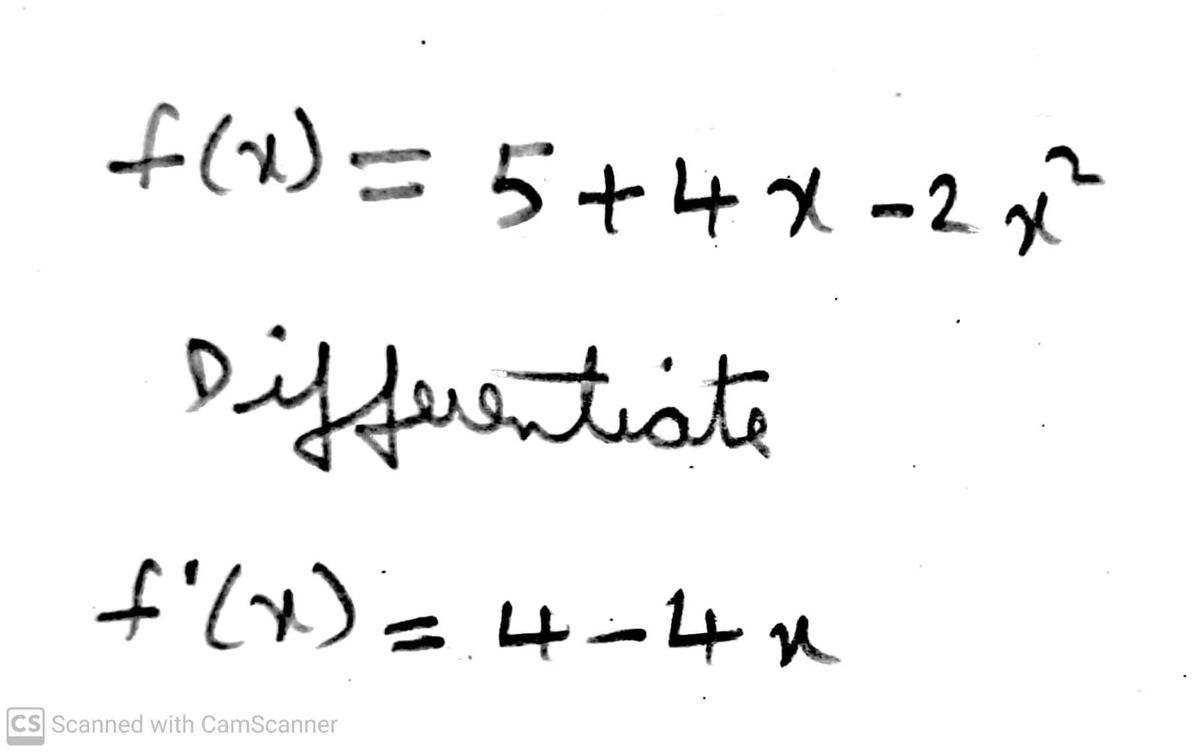 f(x) = 5 + 4x - 2x²
Differentiate
f'(x) = 4 - 4x
CS Scanned with CamScanner